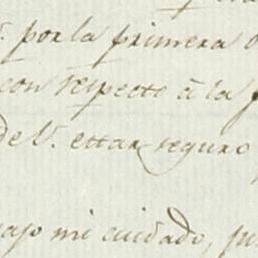 por la primera
con respecto à la
de V. estar seguro
bajo mi cuidado,